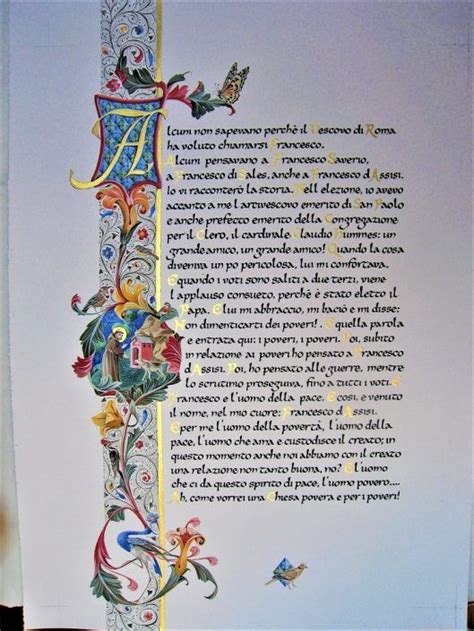 Alcuni non sapevano perchè il Vescovo di Roma
ha voluto chiamarsi Francesco.
Alcuni pensavano a Francesco Saverio,
a Francesco di Sales, anche a Francesco d'Assisi.
Io vi racconterò la storia. Nell'elezione, io avevo
accanto a me l'arcivescovo emerito di San Paolo
e anche prefetto emerito della Congregazione
per il Clero, il cardinale Claudio Hummes: un
grande amico, un grande amico! Quando la cosa
diveniva un po pericolosa, lui mi confortava.
E quando i voti sono saliti a due terzi, viene
l'applauso consueto, perchè è stato eletto il
Papa. E lui mi abbracciò, mi baciò e mi disse:
"Non dimenticarti dei poveri!". E quella parola
è entrata qui: i poveri, i poveri. Poi, subito
in relazione ai poveri ho pensato a Francesco
d'Assisi. Poi, ho pensato alle guerre, mentre
lo scrutinio proseguiva, fino a tutti i voti. E
Francesco è l'uomo della pace. E così, è venuto
il nome, nel mio cuore: Francesco d'Assisi.
E per me l'uomo della povertà, l'uomo della
pace, l'uomo che ama e custodisce il creato; in
questo momento anche noi abbiamo con il creato
una relazione non tanto buona, no? È l'uomo
che ci dà questo spirito di pace, l'uomo povero....
Ah, come vorrei una Chiesa povera e per i poveri!